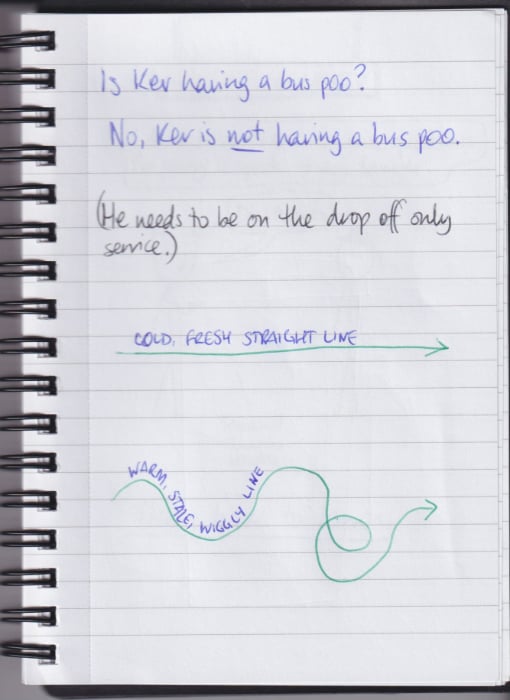 Is Kev having a bus poo?
No, Kev is not having a bus poo.
(He needs to be on the drop off only
service.)
COLD, FRESH STRAIGHT LINE
WARM, STALE, WIGGLY LINE